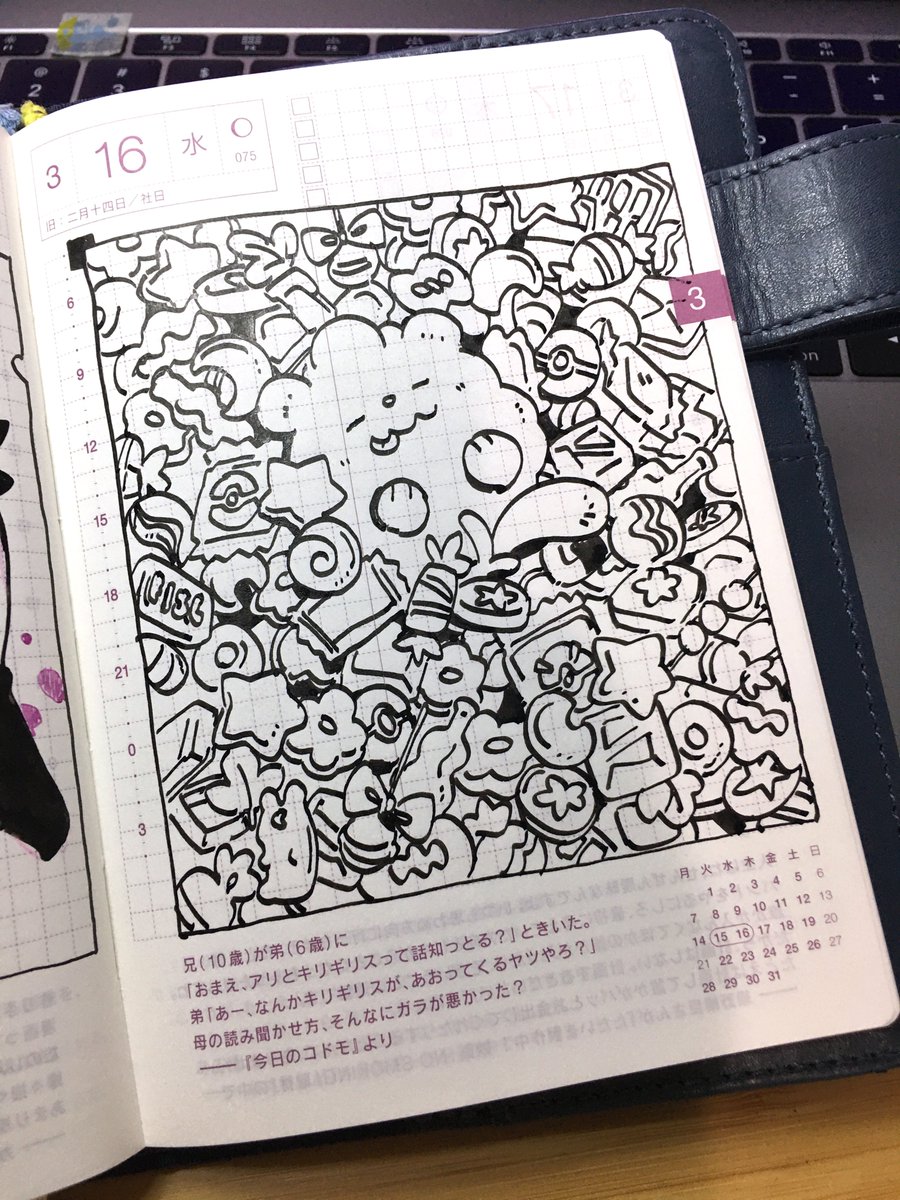 3 16 水
075
旧:二月十四日/社日
3
6
9
12
15
18
21
0
3
兄(10歳)が弟(6歳)に
「おまえ、アリとキリギリスって話知っとる?」ときいた。
弟「あー、なんかキリギリスが、あおってくるヤツやろ?」
母の読み聞かせ方、そんなにガラが悪かった?
——『今日のコドモ』より
月 火 水 木 金 土 日
1 2 3 4 5 6
7 8 9 10 11 12 13
14 15 16 17 18 19 20
21 22 23 24 25 26 27
28 29 30 31